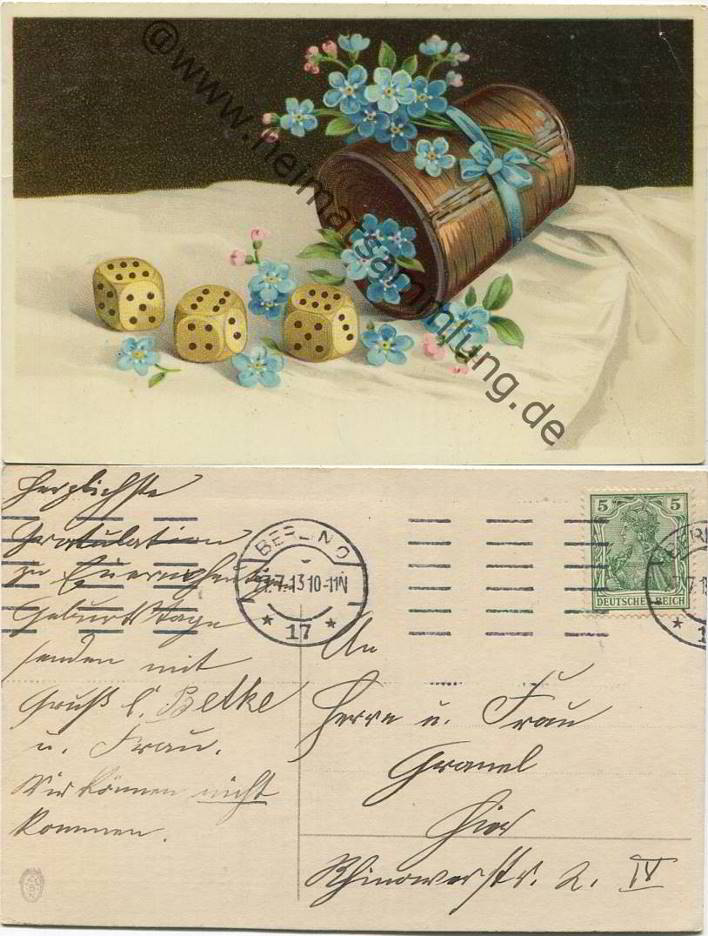 @www.heimatsammlung.de
Herzlichste
Gratulation
zu Eurem heutigen
Geburtstage
senden mit
Gruß
Betke
u. Frau.
Wir können nicht
kommen.
BERLIN O
7.13 10-11N
* 17 *
5 5
DEUTSCHES REICH
An
Herrn u. Frau
Granel
hier
Rhinowerstr. 2. IV